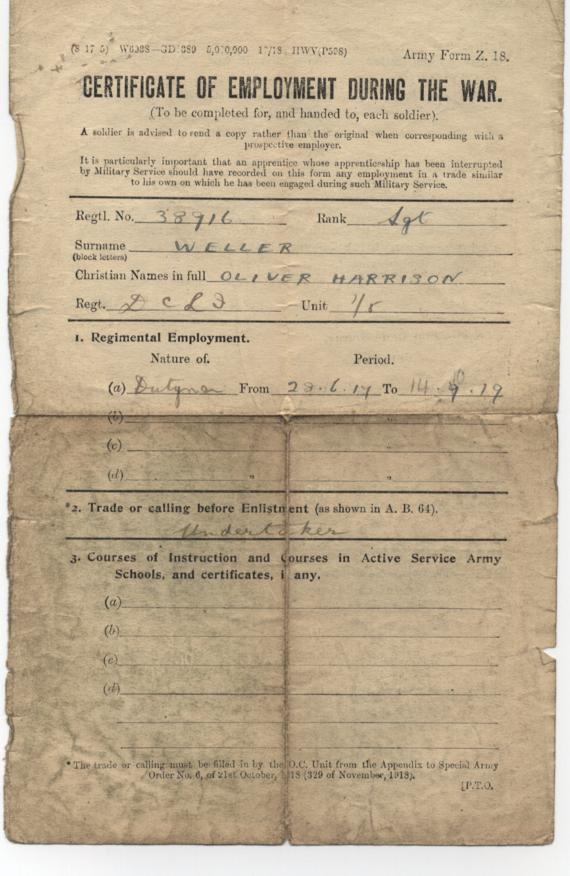 (8 17 5) W6938—GD1389 5,000,000 12/18 HWV(P598)
Army Form Z. 18.
CERTIFICATE OF EMPLOYMENT DURING THE WAR.
(To be completed for, and handed to, each soldier).
A soldier is advised to send a copy rather than the original when corresponding with a
prospective employer.
It is particularly important that an apprentice whose apprenticeship has been interrupted
by Military Service should have recorded on this form any employment in a trade similar
to his own on which he has been engaged during such Military Service.
Regtl. No. 38916 Rank Sgt
Surname WELLER
(block letters)
Christian Names in full OLIVER HARRISON
Regt. D C L I Unit 1/5
1. Regimental Employment.
Nature of. Period.
(a) From 23.6.17 To 14.9.19
(b) " "
(c) " "
(d) " "
*2. Trade or calling before Enlistment (as shown in A. B. 64).
Undertaker
3. Courses of Instruction and Courses in Active Service Army
Schools, and certificates, i any.
(a)
(b)
(c)
(d)
* The trade or calling must be filled in by the O.C. Unit from the Appendix to Special Army
Order No. 6, of 21st October, 918 (329 of November, 1918).
[P.T.O.